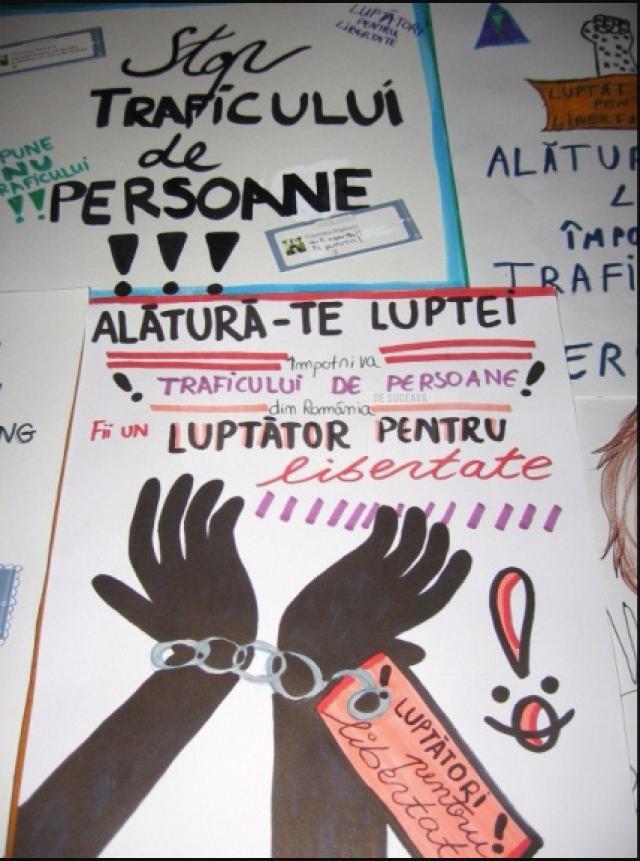 LUPTĂTORI
PENTRU
LIBERTATE
Stop
TRAFICULUI
de
PERSOANE
!!!
PUNE
NU
TRAFICULUI
!!
LUPTĂT
PEN
LIBERTA
ALĂTUR
L
ÎMPO
TRAFI
ER
NG
ALĂTURĂ-TE LUPTEI
împotriva
! TRAFICULUI DE PERSOANE!
DE SUCEAVA
din România
Fii UN LUPTĂTOR PENTRU
libertate
!
LUPTĂTORI
pentru
libertat
!